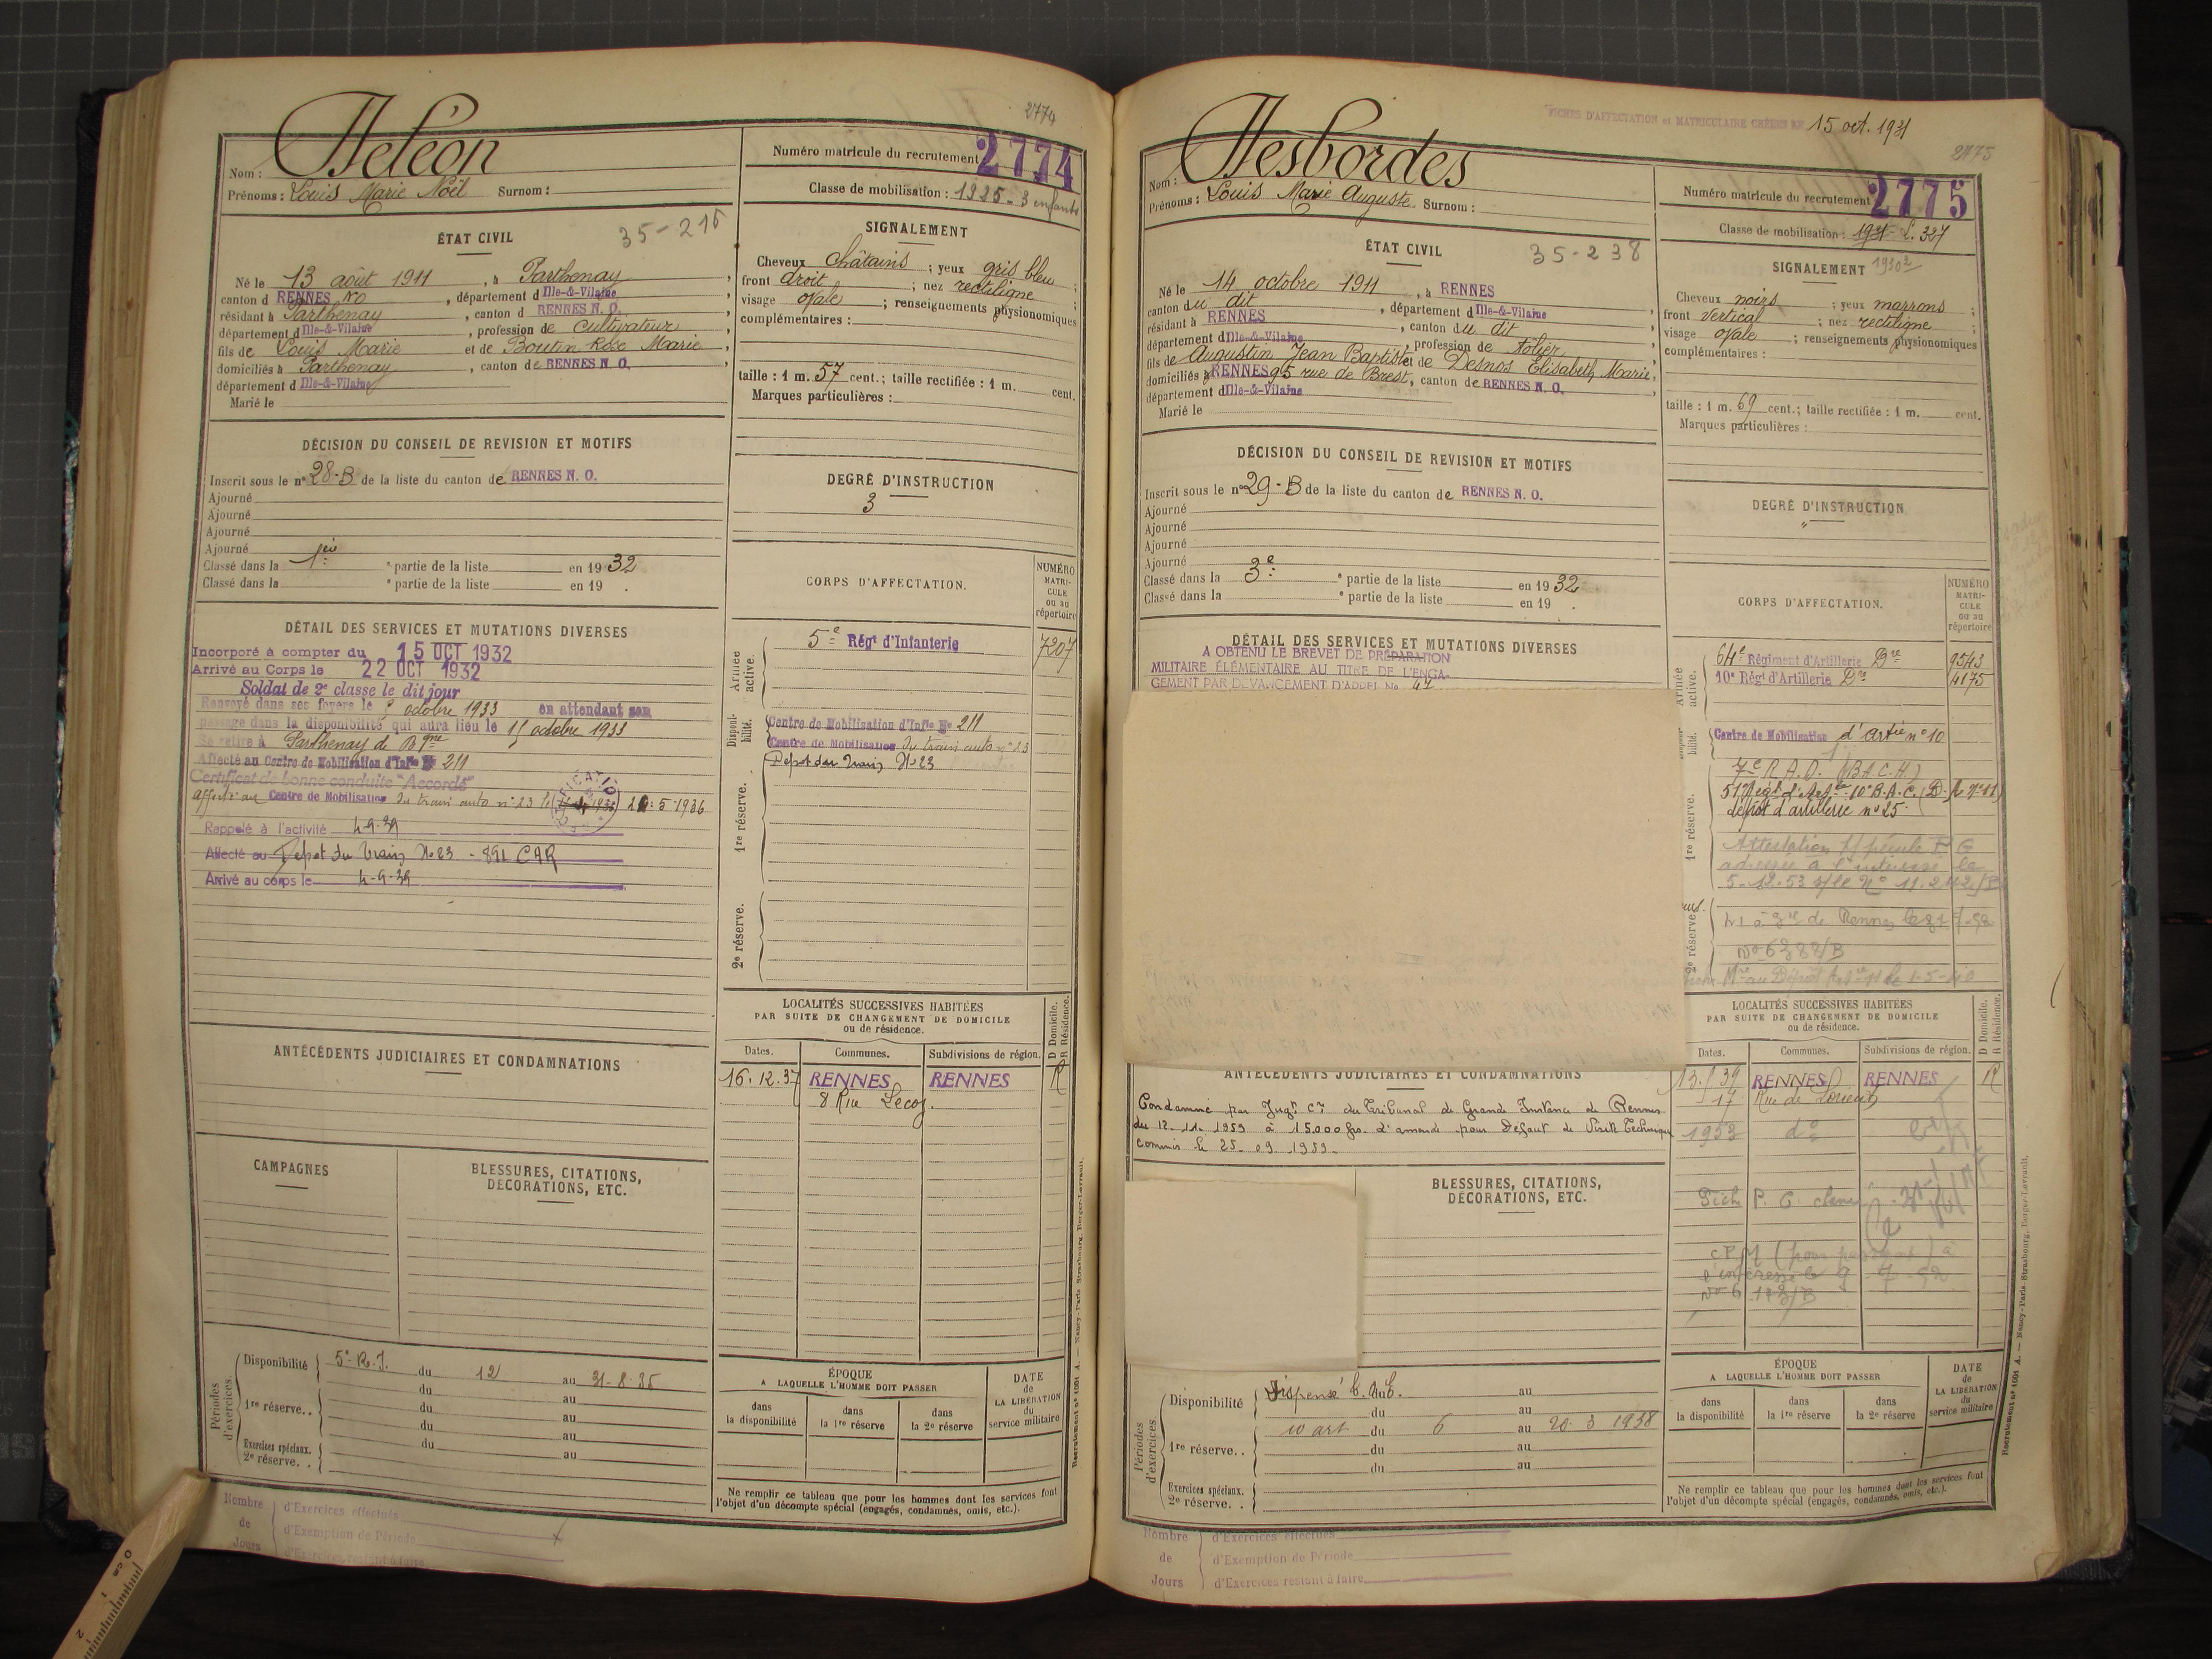 2774
Deléon
Nom :
Prénoms : Louis Marie Noël Surnom :
Numéro matricule du recrutement 2774
Classe de mobilisation : 1925 - 3 enfants
ÉTAT CIVIL
35-215
Né le 13 août 1911, à Parthenay,
canton d RENNES NO, département d Ille-&-Vilaine,
résidant à Parthenay, canton d RENNES N. O.,
département d Ille-&-Vilaine, profession de cultivateur,
fils de Louis Marie et de Boutin Rose Marie,
domiciliés à Parthenay, canton de RENNES N. O.,
département d Ille-&-Vilaine
Marié le
SIGNALEMENT
Cheveux châtains ; yeux gris bleu ;
front droit ; nez rectiligne ;
visage ovale ; renseignements physionomiques
complémentaires :
taille : 1 m. 57 cent.; taille rectifiée : 1 m. cent.
Marques particulières :
DÉCISION DU CONSEIL DE REVISION ET MOTIFS
Inscrit sous le n° 28-B de la liste du canton de RENNES N. O.
Ajourné
Ajourné
Ajourné
Ajourné
Classé dans la 1ère partie de la liste en 1932
Classé dans la e partie de la liste en 19 .
DEGRÉ D'INSTRUCTION
3
DÉTAIL DES SERVICES ET MUTATIONS DIVERSES
Incorporé à compter du 15 OCT 1932
Arrivé au Corps le 22 OCT 1932
Soldat de 2e classe le dit jour
Renvoyé dans ses foyers le octobre 1933 en attendant son
passage dans la disponibilité qui aura lieu le 15 octobre 1933
Se retire à Parthenay de Bgne
Affecté au Centre de Mobilisation d'Infie No 211
Certificat de bonne conduite "Accordé"
Affecté au Centre de Mobilisation du train auto n° 23 le 5-1936
Rappelé à l'activité 4-9-39
Affecté au Dépot du Train No 23 - 891 CAR
Arrivé au corps le 4-9-39
CORPS D'AFFECTATION.
NUMÉRO MATRICULE ou au répertoire
Armée active.
5e Régt d'Infanterie 7207
Disponibilité.
Centre de Mobilisation d'Infie No 211
Centre de Mobilisation du train auto n° 23
1re réserve.
Dépot du Train No 23
2e réserve.
LOCALITÉS SUCCESSIVES HABITÉES
PAR SUITE DE CHANGEMENT DE DOMICILE
ou de résidence.
D Domicile.
R Résidence.
Dates. Communes. Subdivisions de région.
16.12.37 RENNES RENNES R
8 Rue Lecoz.
ANTÉCÉDENTS JUDICIAIRES ET CONDAMNATIONS
CAMPAGNES
BLESSURES, CITATIONS,
DÉCORATIONS, ETC.
Périodes d'exercices.
Disponibilité 5e R.I. du 12 au 31-8-35
du au
1re réserve.. du au
du au
Exercices spéciaux. du au
2e réserve. .
ÉPOQUE
A LAQUELLE L'HOMME DOIT PASSER
dans la disponibilité
dans la 1re réserve
dans la 2e réserve
DATE de LA LIBÉRATION du service militaire
Ne remplir ce tableau que pour les hommes dont les services font
l'objet d'un décompte spécial (engagés, condamnés, omis, etc.).
Nombre de Jours
d'Exercices effectués
d'Exemption de Période
d'Exercices restant à faire
Recrutement n° 1001 A. — Nancy-Paris-Strasbourg, Berger-Levrault.
FICHES D'AFFECTATION et MATRICULAIRE CRÉÉES LE 15 oct. 1931
2775
Desbordes
Nom :
Prénoms : Louis Marie Auguste Surnom :
Numéro matricule du recrutement 2775
Classe de mobilisation : 1931 L. 327
ÉTAT CIVIL
35-238
Né le 14 octobre 1911, à RENNES
canton du dit, département d Ille-&-Vilaine,
résidant à RENNES, canton du dit,
département d Ille-&-Vilaine, profession de tôlier,
fils de Augustin Jean Baptiste et de Desnos Elisabeth Marie,
domiciliés à RENNES 95 rue de Brest, canton de RENNES N. O.,
département d Ille-&-Vilaine
Marié le
SIGNALEMENT
Cheveux noirs ; yeux marrons ;
front vertical ; nez rectiligne ;
visage ovale ; renseignements physionomiques
complémentaires :
taille : 1 m. 69 cent.; taille rectifiée : 1 m. cent.
Marques particulières :
DÉCISION DU CONSEIL DE REVISION ET MOTIFS
Inscrit sous le n° 29-B de la liste du canton de RENNES N. O.
Ajourné
Ajourné
Ajourné
Ajourné
Classé dans la 3e partie de la liste en 1932
Classé dans la e partie de la liste en 19 .
DEGRÉ D'INSTRUCTION
"
DÉTAIL DES SERVICES ET MUTATIONS DIVERSES
A OBTENU LE BREVET DE PRÉPARATION
MILITAIRE ÉLÉMENTAIRE AU TITRE DE L'ENGA-
GEMENT PAR DEVANCEMENT D'APPEL No 47
CORPS D'AFFECTATION.
NUMÉRO MATRICULE ou au répertoire
Armée active.
64e Régiment d'Artillerie Dre 9543
10e Régt d'Artillerie Dre 4175
Centre de Mobilisation d'Artie n° 10
7e R.A.D. (B.A.C.H.)
dépôt d'artillerie n° 25.
1re réserve.
Attestation pécule P G
adressée à l'intéressé le
5-12-53 s/le No 11.242/B
2e réserve.
No 6388/B
LOCALITÉS SUCCESSIVES HABITÉES
PAR SUITE DE CHANGEMENT DE DOMICILE
ou de résidence.
D Domicile.
R Résidence.
Dates. Communes. Subdivisions de région.
RENNES RENNES R
17 Rue de Lorient
1953 do
ANTÉCÉDENTS JUDICIAIRES ET CONDAMNATIONS
Condamné par Jugt Cel du Tribunal de Grande Instance de Rennes
du 12-11-1959 à 15.000 frs. d'amende pour Défaut de Visite Technique
commis le 25-09-1959.
BLESSURES, CITATIONS,
DÉCORATIONS, ETC.
Périodes d'exercices.
Disponibilité Dispensé au
du au
10 art du 6 au 20 3 1938
1re réserve. . du au
du au
Exercices spéciaux.
2e réserve. .
ÉPOQUE
A LAQUELLE L'HOMME DOIT PASSER
dans la disponibilité
dans la 1re réserve
dans la 2e réserve
DATE de LA LIBÉRATION du service militaire
Ne remplir ce tableau que pour les hommes dont les services font
l'objet d'un décompte spécial (engagés, condamnés, omis, etc.).
Nombre de Jours
d'Exercices effectués
d'Exemption de Période
d'Exercices restant à faire
Recrutement n° 1001 A. — Nancy-Paris-Strasbourg, Berger-Levrault.